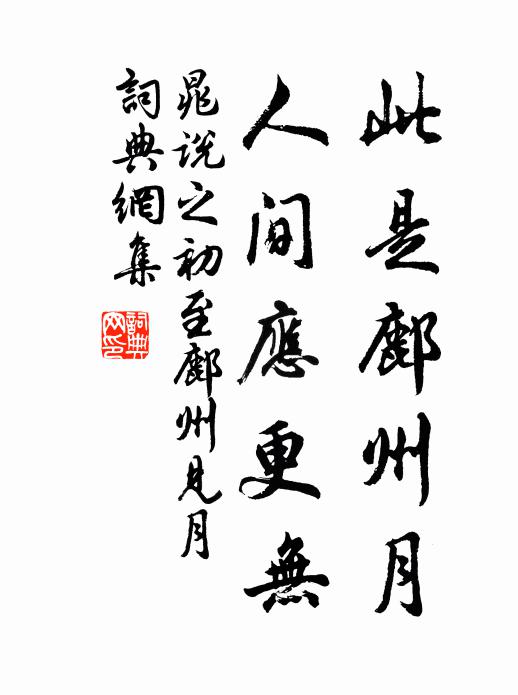 此是鄜州月
人間應更無
晁説之初至鄜州見月
詞典網集
詞典網印